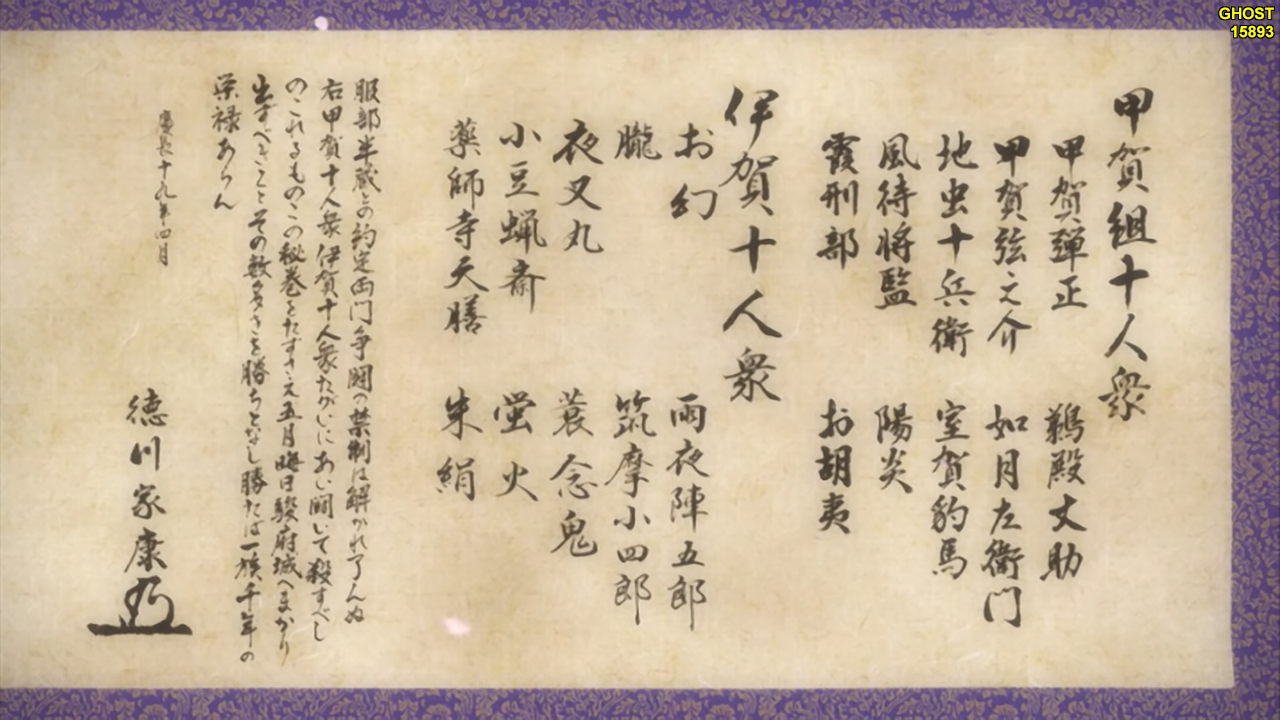 GHOST
15893
甲賀組十人衆
甲賀彈正
甲賀弦之介
地虫十兵衛
風待将監
霞刑部
鵜殿丈助
如月左衛門
室賀豹馬
陽炎
お胡夷
伊賀十人衆
お幻
朧
夜叉丸
小豆蝋斎
薬師寺天膳
雨夜陣五郎
筑摩小四郎
蓑念鬼
蛍火
朱絹
服部半蔵との約定両門争闘の禁制は解かれ了んぬ
右甲賀十人衆伊賀十人衆たがいにあい闘いて殺すべし
のこれるものこの秘巻をたずさえ五月晦日駿府城へまかり
出ずべきことその数多きを勝ちとなし勝たば一族千年の
栄禄あらん
慶長十九年四月
徳川家康